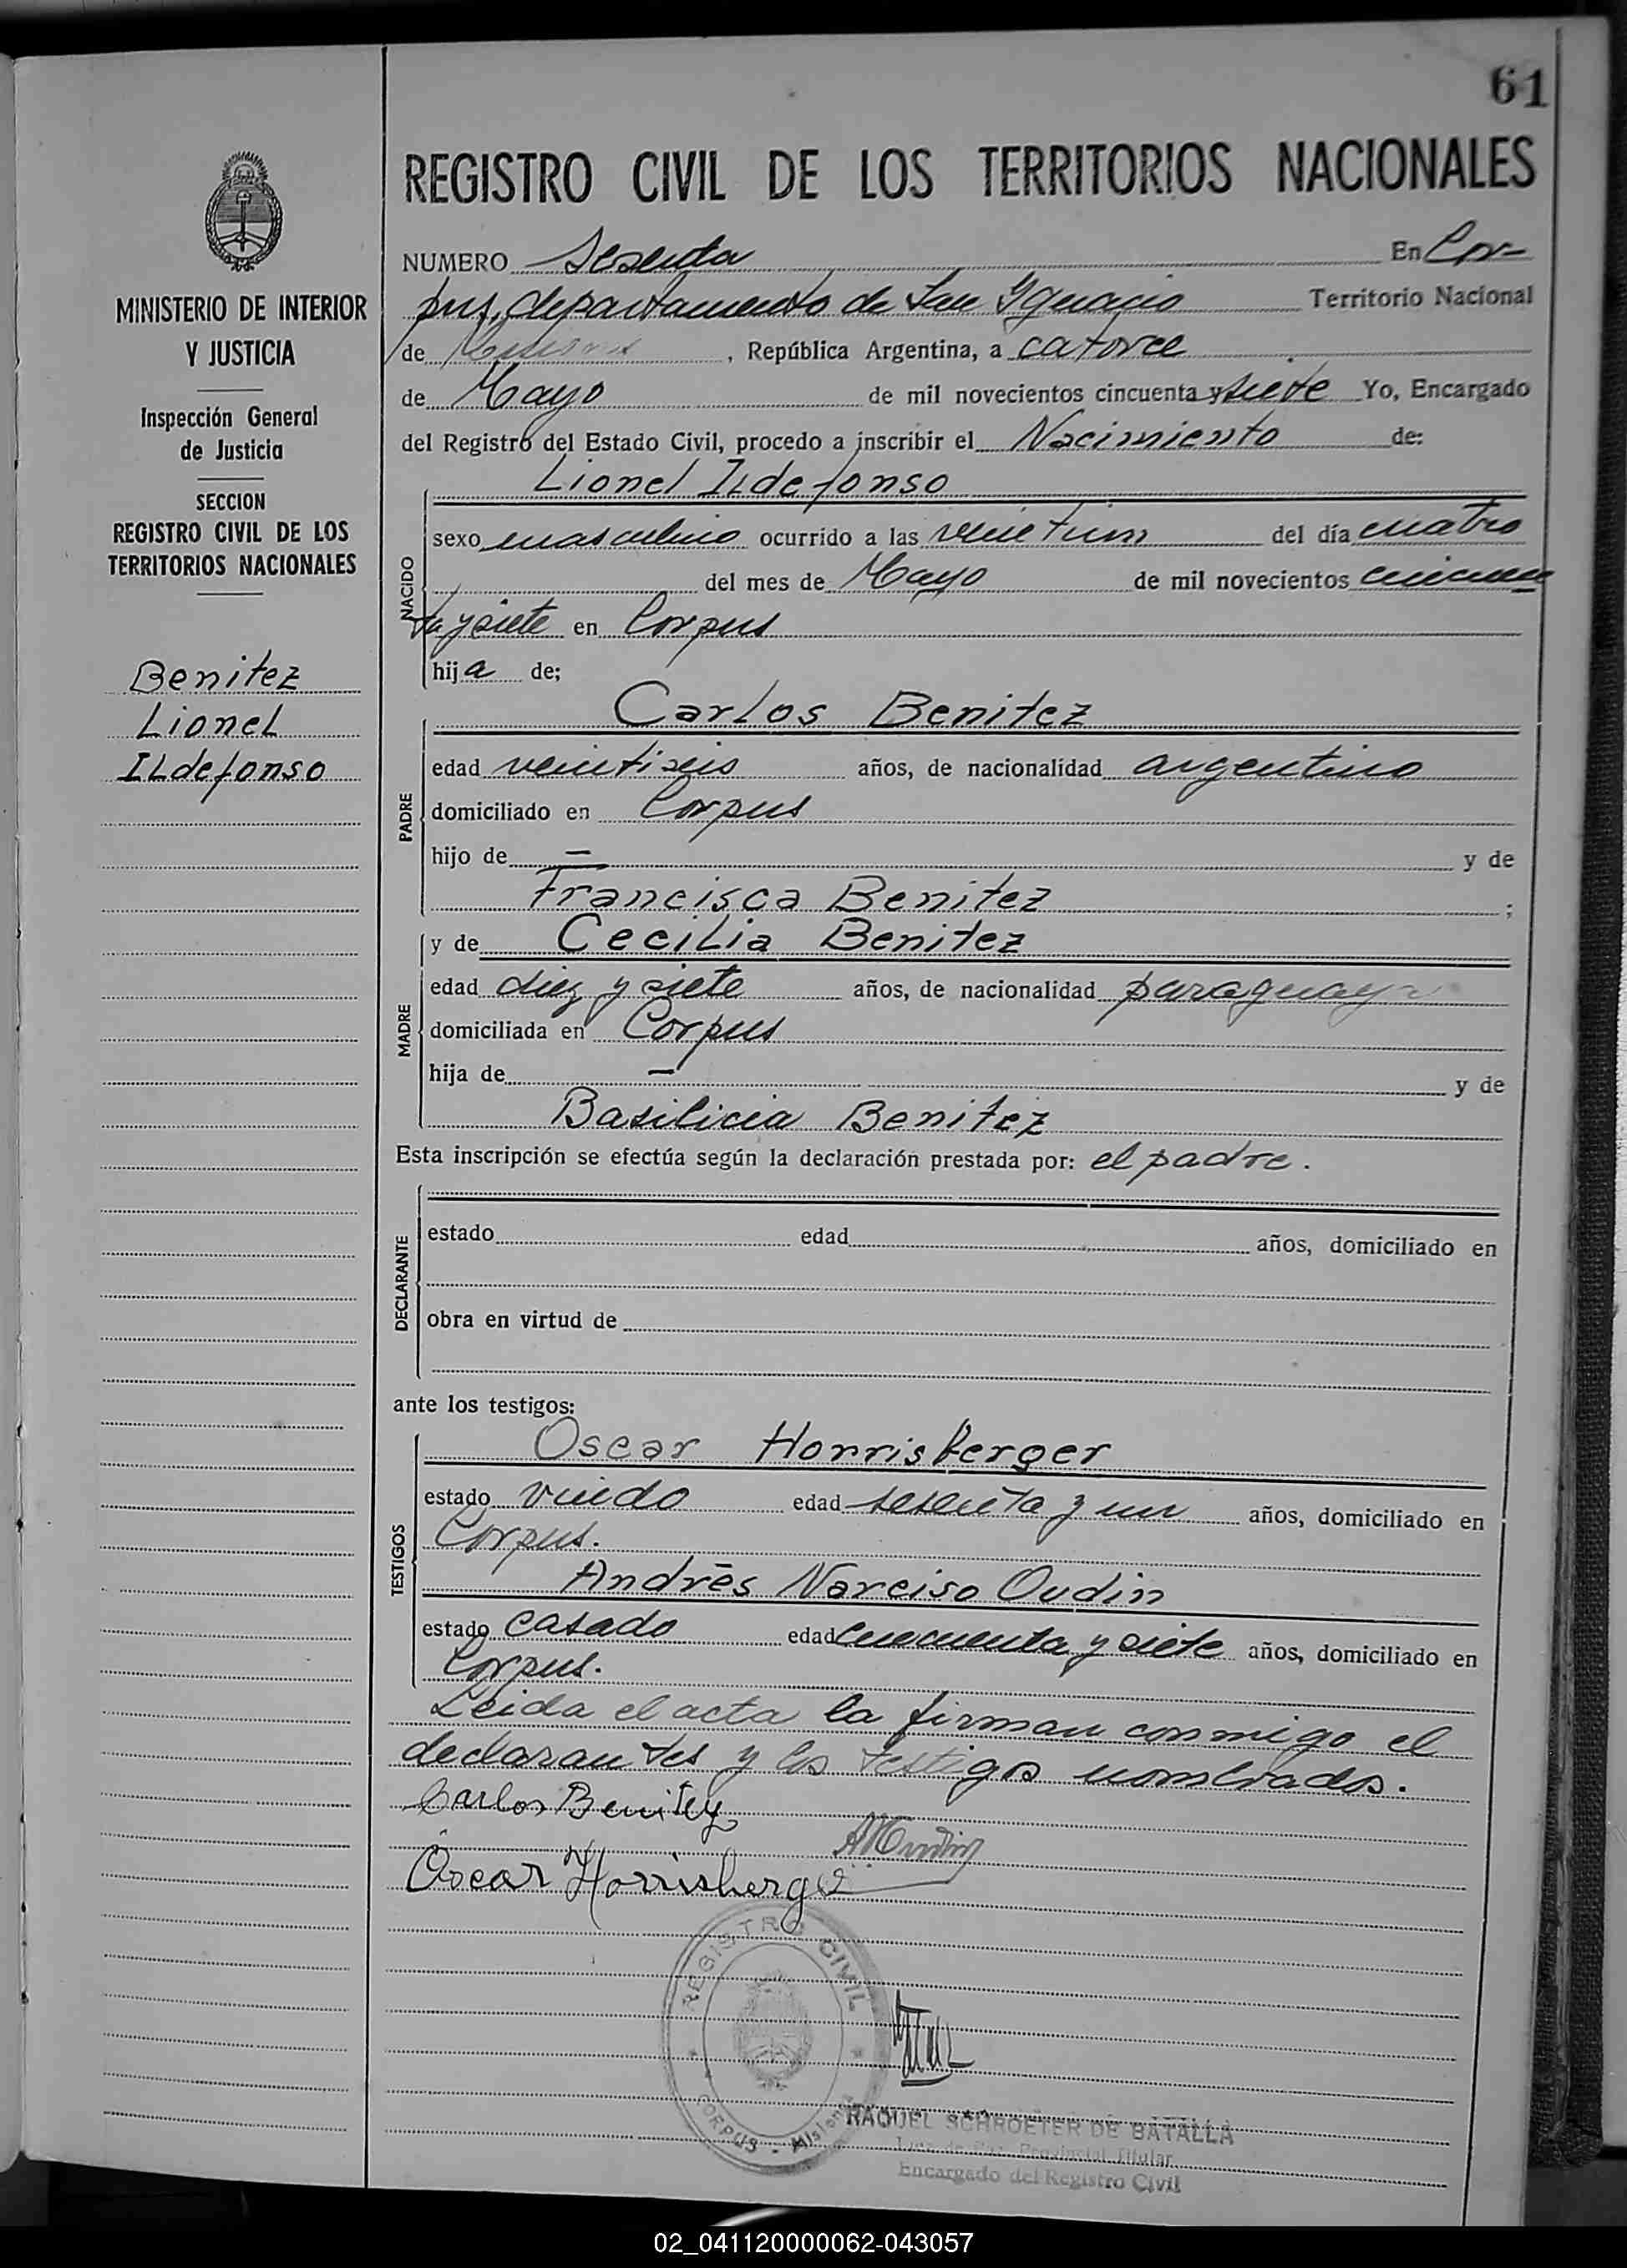 61
REGISTRO CIVIL DE LOS TERRITORIOS NACIONALES
MINISTERIO DE INTERIOR
Y JUSTICIA
Inspección General
de Justicia
SECCION
REGISTRO CIVIL DE LOS
TERRITORIOS NACIONALES
Benitez
Lionel
ILdefonso
NUMERO Sesenta En Cor-
pus, departamento de San Ignacio Territorio Nacional
de Misiones, República Argentina, a catorce
de Mayo de mil novecientos cincuenta y siete Yo, Encargado
del Registro del Estado Civil, procedo a inscribir el Nacimiento de:
NACIDO
Lionel ILdefonso
sexo masculino ocurrido a las veintiun del día cuatro
del mes de Mayo de mil novecientos cincuen
ta y siete en Corpus
hija de;
PADRE
Carlos Benitez
edad veintiseis años, de nacionalidad argentino
domiciliado en Corpus
hijo de — y de
Francisca Benitez ;
MADRE
y de Cecilia Benitez
edad diez y siete años, de nacionalidad paraguaya
domiciliada en Corpus
hija de — y de
Basilicia Benitez
Esta inscripción se efectúa según la declaración prestada por: el padre.
DECLARANTE
estado edad años, domiciliado en
obra en virtud de
ante los testigos:
TESTIGOS
Oscar Horrisberger
estado viudo edad sesenta y un años, domiciliado en
Corpus.
Andrés Narciso Oudin
estado casado edad cincuenta y siete años, domiciliado en
Corpus.
Leida el acta la firman conmigo el
declarantes y los testigos nombrados.
Carlos Benitez
Oscar Horrisberger
REGISTRO CIVIL
CORPUS - Misiones
RAQUEL SCHROETER DE BATALLA
Juez de Paz Provincial Titular
Encargado del Registro Civil
02_041120000062-043057